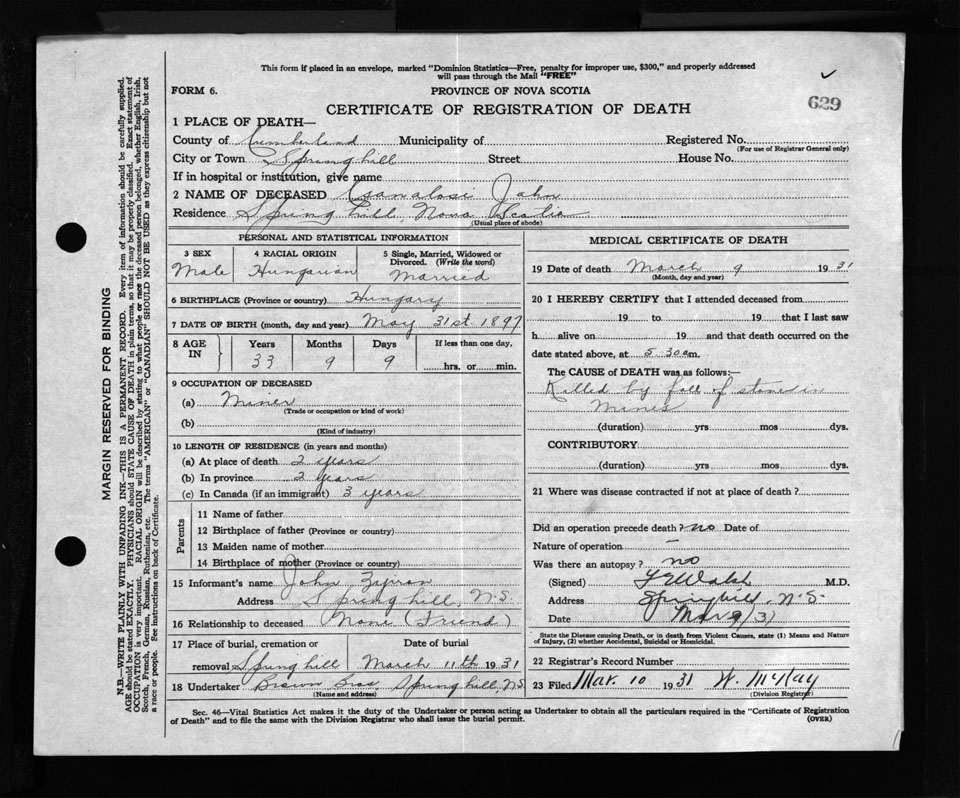 This form if placed in an envelope, marked "Dominion Statistics—Free, penalty for improper use, $300," and properly addressed
will pass through the Mail "FREE"
FORM 6. PROVINCE OF NOVA SCOTIA
629
CERTIFICATE OF REGISTRATION OF DEATH
1 PLACE OF DEATH—
County of Cumberland Municipality of Registered No.
(For use of Registrar General only)
City or Town Springhill Street House No.
If in hospital or institution, give name
2 NAME OF DECEASED Csamalosi John
Residence Spring hill, Nova Scotia
(Usual place of abode)
PERSONAL AND STATISTICAL INFORMATION
3 SEX 4 RACIAL ORIGIN 5 Single, Married, Widowed or
Divorced. (Write the word)
Male Hungarian Married
6 BIRTHPLACE (Province or country) Hungary
7 DATE OF BIRTH (month, day and year) May 31st 1897
8 AGE IN Years Months Days If less than one day,
33 9 9 hrs. or min.
9 OCCUPATION OF DECEASED
(a) Miner
(Trade or occupation or kind of work)
(b)
(Kind of industry)
10 LENGTH OF RESIDENCE (in years and months)
(a) At place of death 2 years
(b) In province 2 years
(c) In Canada (if an immigrant) 3 years
Parents
11 Name of father
12 Birthplace of father (Province or country)
13 Maiden name of mother
14 Birthplace of mother (Province or country)
15 Informant's name John
Address Spring hill, N.S.
16 Relationship to deceased None (Friend)
17 Place of burial, cremation or Date of burial
removal Spring hill March 11th 1931
18 Undertaker Brown Bros Spring hill, N.S
(Name and address)
MEDICAL CERTIFICATE OF DEATH
19 Date of death March 9 1931
(Month, day and year)
20 I HEREBY CERTIFY that I attended deceased from
19 to 19 that I last saw
h alive on 19 and that death occurred on the
date stated above, at 5.30 a m.
The CAUSE of DEATH was as follows:—
Killed by fall of stone in
Mines
(duration) yrs mos dys.
CONTRIBUTORY
(duration) yrs mos dys.
21 Where was disease contracted if not at place of death?
Did an operation precede death? no Date of
Nature of operation —
Was there an autopsy? no
(Signed) Walsh M.D.
Address Springhill, N.S.
Date Mar 9/31
State the Disease causing Death, or in death from Violent Causes, state (1) Means and Nature
of Injury, (2) whether Accidental, Suicidal or Homicidal.
22 Registrar's Record Number
23 Filed Mar. 10 1931 W. McKay
(Division Registrar)
Sec. 46—Vital Statistics Act makes it the duty of the Undertaker or person acting as Undertaker to obtain all the particulars required in the "Certificate of Registration
of Death" and to file the same with the Division Registrar who shall issue the burial permit. (OVER)
MARGIN RESERVED FOR BINDING
N.B.—WRITE PLAINLY WITH UNFADING INK—THIS IS A PERMANENT RECORD. Every item of information should be carefully supplied.
AGE should be stated EXACTLY. PHYSICIANS should STATE CAUSE OF DEATH in plain terms, so that it may be properly classified. Exact statement of
OCCUPATION is very important. RACIAL ORIGIN will be described by stating to what people or race the deceased person belonged, whether English, Irish,
Scotch, French, German, Russian, Ruthenian, etc. The terms "AMERICAN" or "CANADIAN" SHOULD NOT BE USED as they express citizenship but not
a race or people. See instructions on back of Certificate.